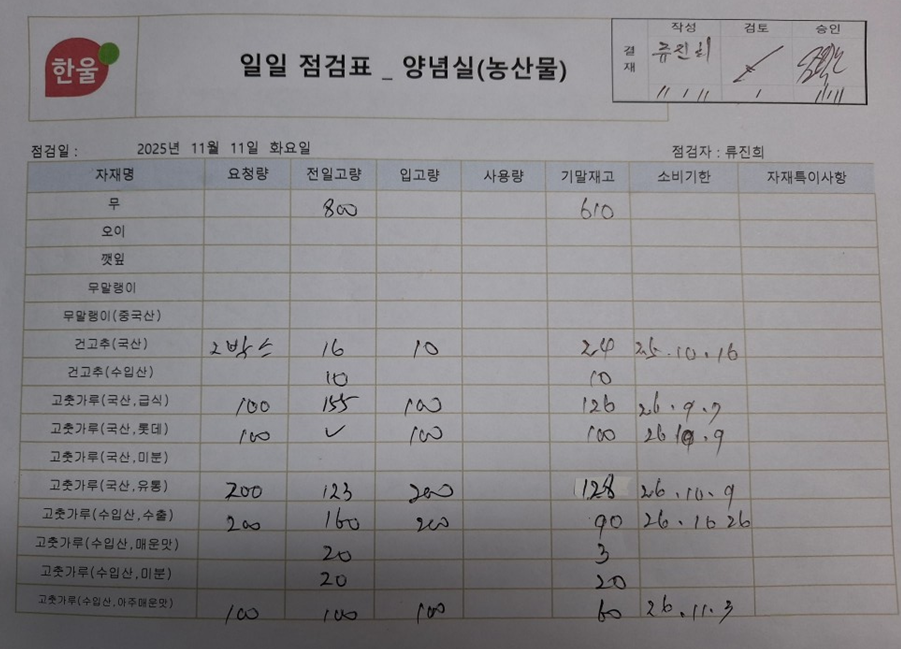 한울
일일 점검표 _ 양념실(농산물)
결재 작성 검토 승인
류진희
11 / 11
11/11
점검일 : 2025년 11월 11일 화요일 점검자 : 류진희
자재명 요청량 전일고량 입고량 사용량 기말재고 소비기한 자재특이사항
무 800 610
오이
깻잎
무말랭이
무말랭이(중국산)
건고추(국산) 2박스 16 10 24 25.10.16
건고추(수입산) 10 10
고춧가루(국산,급식) 100 155 100 126 26.9.7
고춧가루(국산,롯데) 100 ✓ 100 100 26 .9
고춧가루(국산,미분)
고춧가루(국산,유통) 200 123 200 128 26.10.9
고춧가루(수입산,수출) 200 160 200 90 26.10 26
고춧가루(수입산,매운맛) 20 3
고춧가루(수입산,미분) 20 20
고춧가루(수입산,아주매운맛) 100 100 100 60 26.11.3